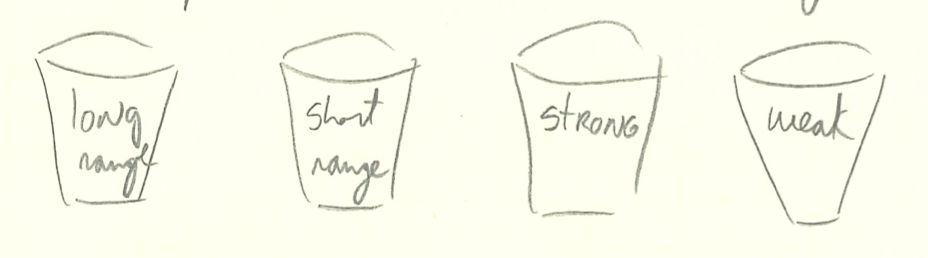 long
range
short
range
STRONG
weak